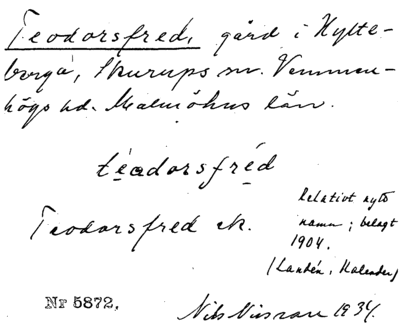 Teodorsfred, gård i Hylte-
berga, Skurups sn. Vemmen-
högs hd. Malmöhus län.
téadorsfréd
Teodorsfred ek.
Relativt nytt
namn; belagt
1904.
(Landén, Kalender)
Nr 5872,
Nils Nilsson 1934.